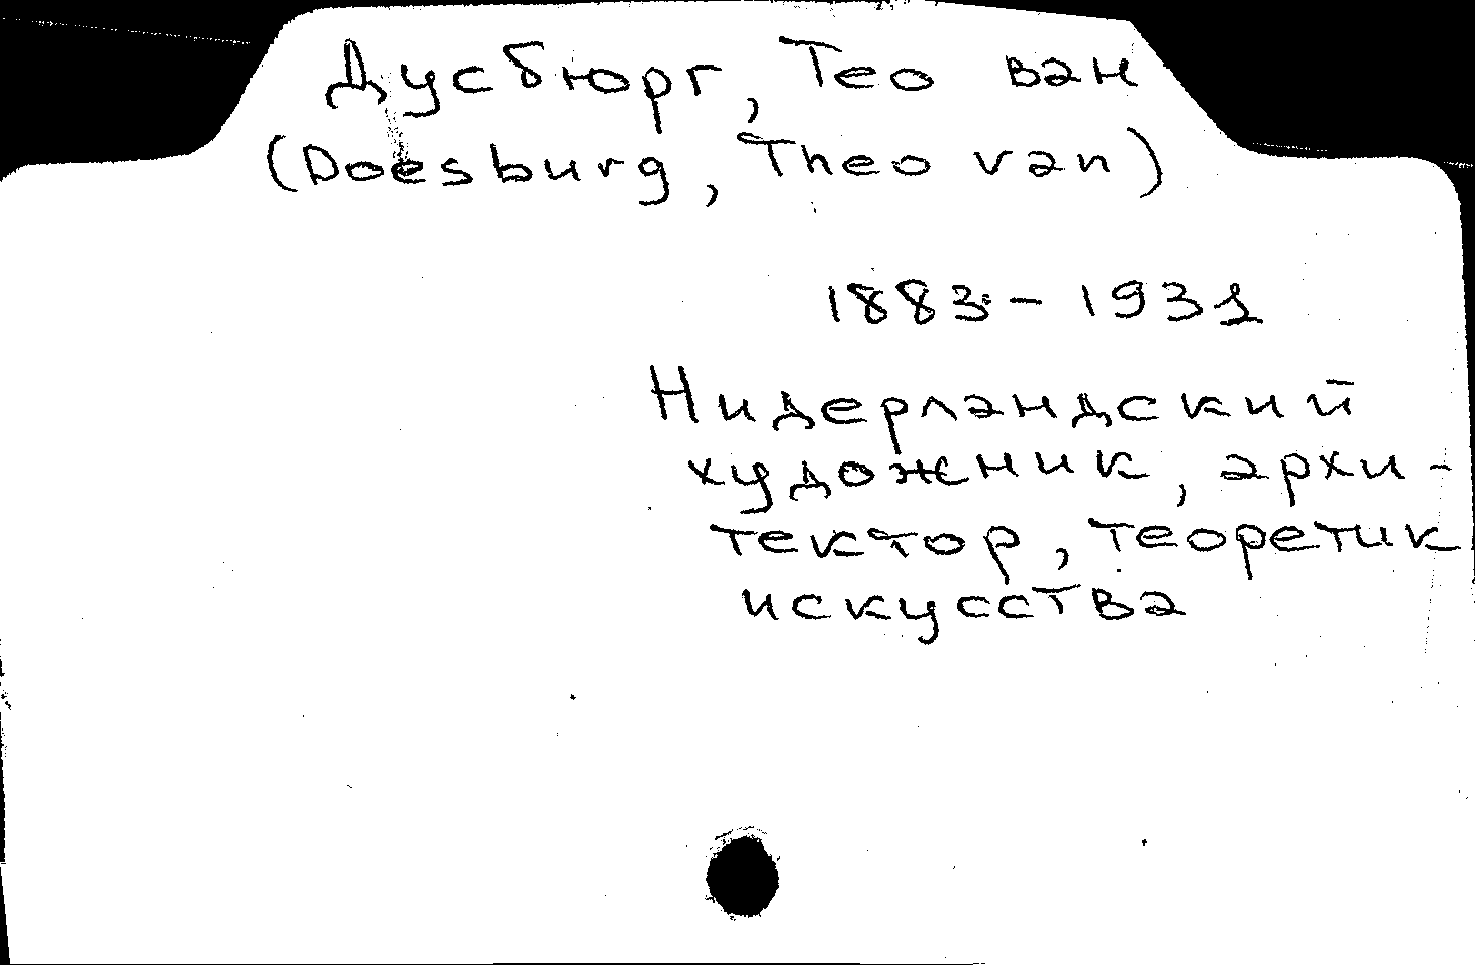 Дусбюрг, Тео ван
(Doesburg, Theo van)
1883-1931
Нидерландский
художник, архи-
тектор, теоретик
искусства